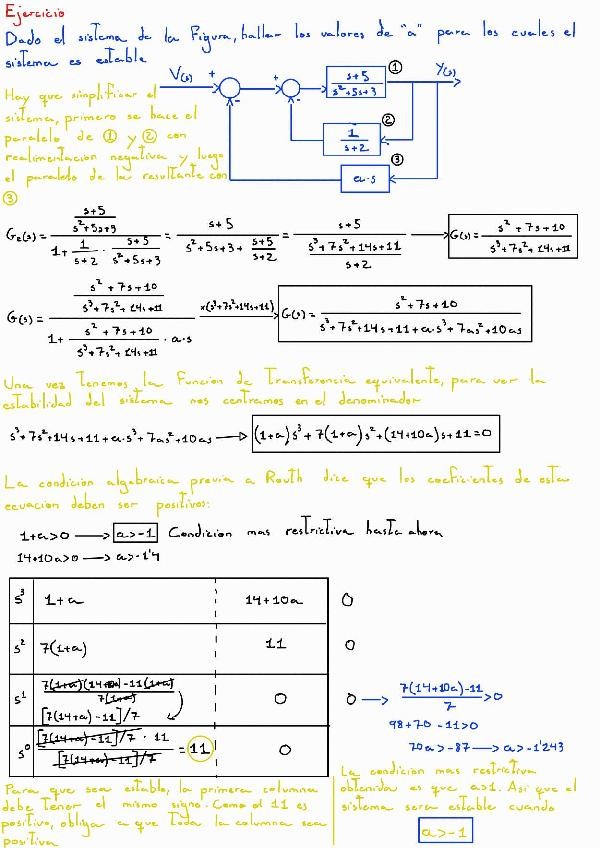 Ejercicio
Dado el sistema de la Figura, hallar los valores de "a" para los cuales el
sistema es estable
V(s) + - + - s+5 / s²+5s+3 ① Y(s)
1 / s+2 ②
a·s ③
Hay que simplificar el
sistema, primero se hace el
paralelo de ① y ② con
realimentación negativa y luego
el paralelo de la resultante con
③
Ge(s) = (s+5 / s²+5s+3) / (1 + 1/(s+2) · (s+5)/(s²+5s+3)) = (s+5) / (s²+5s+3 + (s+5)/(s+2)) = (s+5) / ((s³+7s²+14s+11)/(s+2)) → G(s) = (s²+7s+10) / (s³+7s²+14s+11)
G(s) = ((s²+7s+10) / (s³+7s²+14s+11)) / (1 + (s²+7s+10)/(s³+7s²+14s+11) · a·s) x(s³+7s²+14s+11) → G(s) = (s²+7s+10) / (s³+7s²+14s+11+a·s³+7as²+10as)
Una vez Tenemos la Función de Transferencia equivalente, para ver la
estabilidad del sistema nos centramos en el denominador
s³+7s²+14s+11+a·s³+7as²+10as → (1+a)s³+7(1+a)s²+(14+10a)s+11=0
La condición algebraica previa a Routh dice que los coeficientes de esta
ecuación deben ser positivos:
1+a>0 → a>-1 Condición mas restrictiva hasta ahora
14+10a>0 → a>-1'4
s³ 1+a 14+10a 0
s² 7(1+a) 11 0
s¹ 7(1+a)(14+10a)-11(1+a) / 7(1+a) [7(14+a)-11]/7 0 0 → (7(14+10a)-11)/7 >0
98+70-11>0
70a>-87 → a>-1'243
s⁰ [7(14+a)-11]/7 · 11 / [7(14+a)-11]/7 = 11 0
Para que sea estable, la primera columna
debe tener el mismo signo. Como el 11 es
positivo, obliga a que Toda la columna sea
positiva
La condición mas restrictiva
obtenida es que a>1. Asi que el
sistema sera estable cuando
a>-1